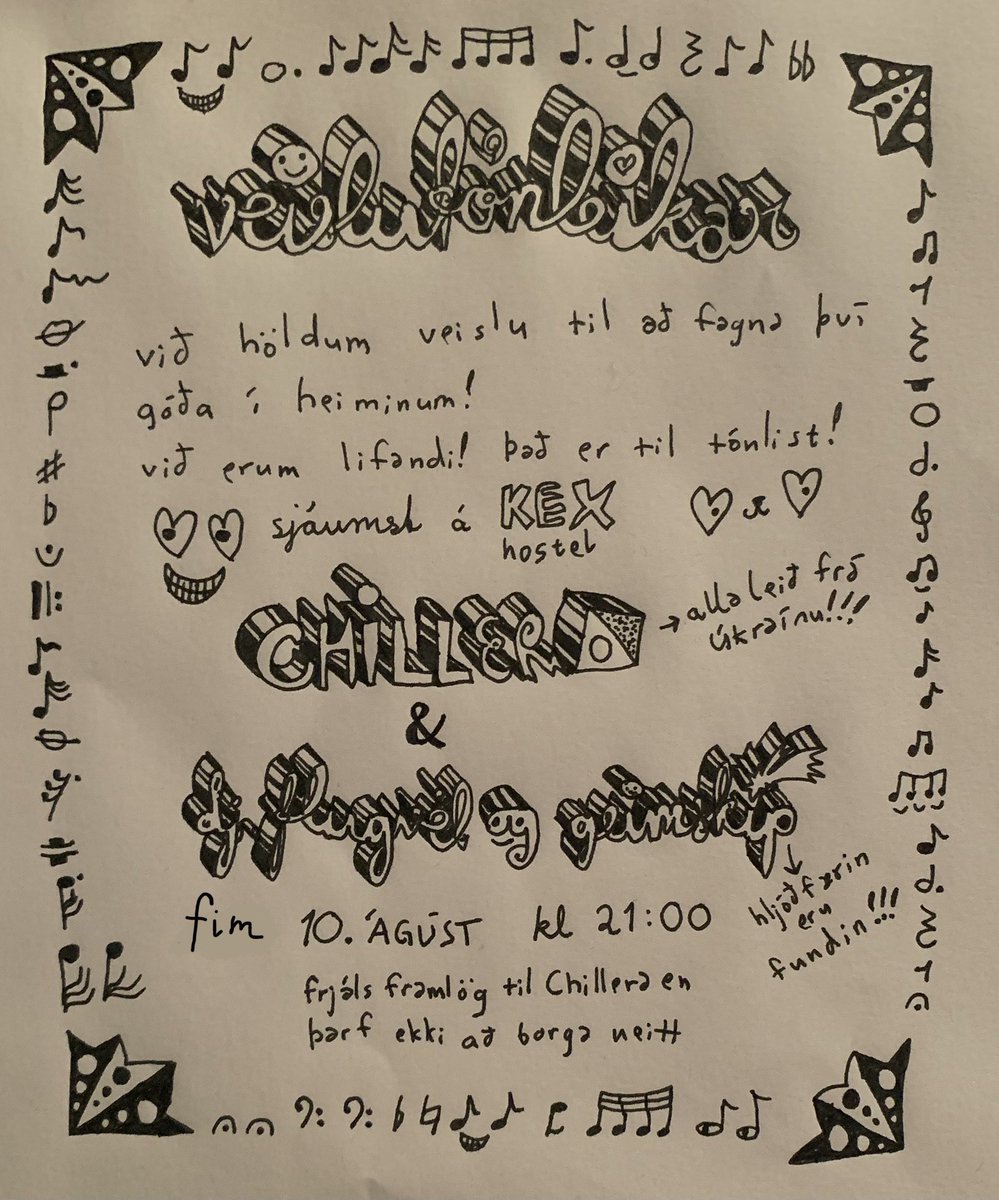 veislutónleikar
við höldum veislu til að fagna því
góða í heiminum!
við erum lifandi! það er til tónlist!
sjáumst á KEX
hostel
CHILLERA
→ alla leið frá
Úkraínu!!!
&
dj. flugvél og geimskip
hljóðfærin
eru
fundin!!!
fim 10. ÁGÚST kl 21:00
frjáls framlög til Chillera en
þarf ekki að borga neitt